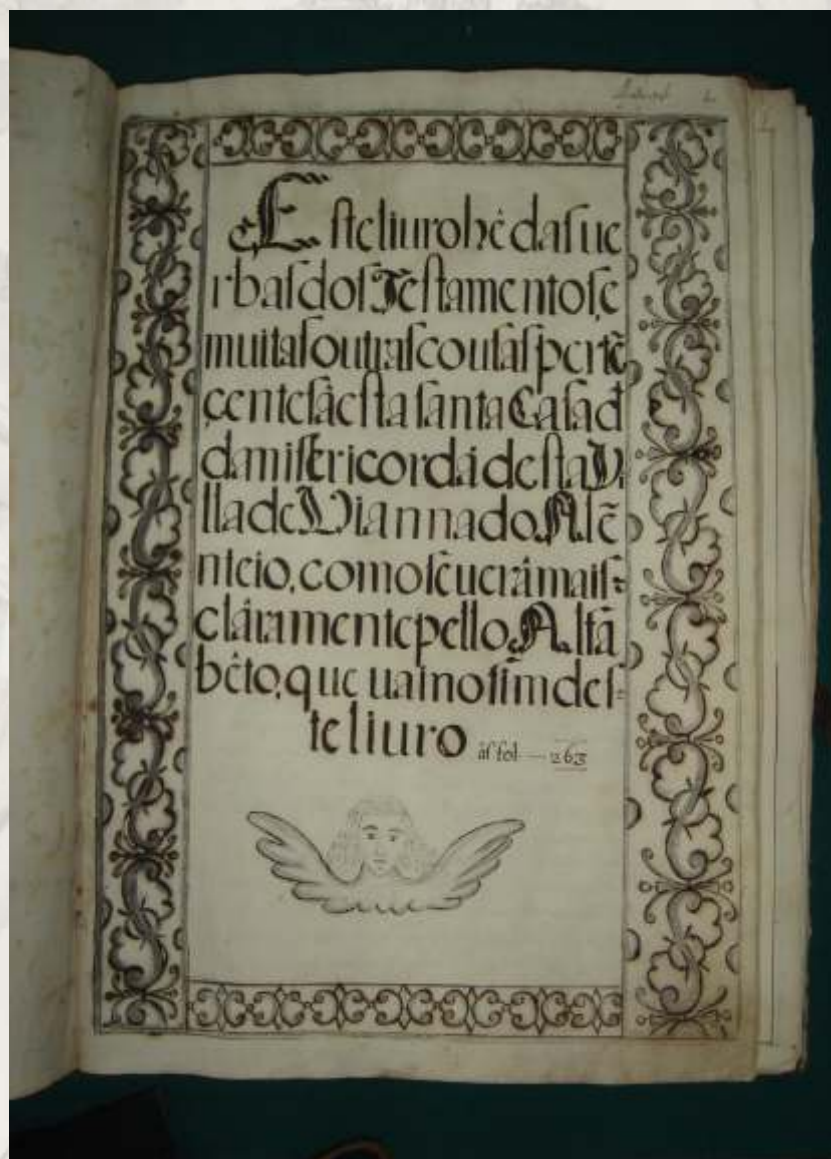 Este liuro hê das ue
rbas dos Testamentos, e
muitas outras cousas pertẽ
çentes â esta santa Casa d
da misericordâ desta Vi
lla de Viannado Alẽ
nteio, como se uerâ mais=
clâramente pello Alfâ
bêto, que uai no fim des=
te liuro âs fol — 263